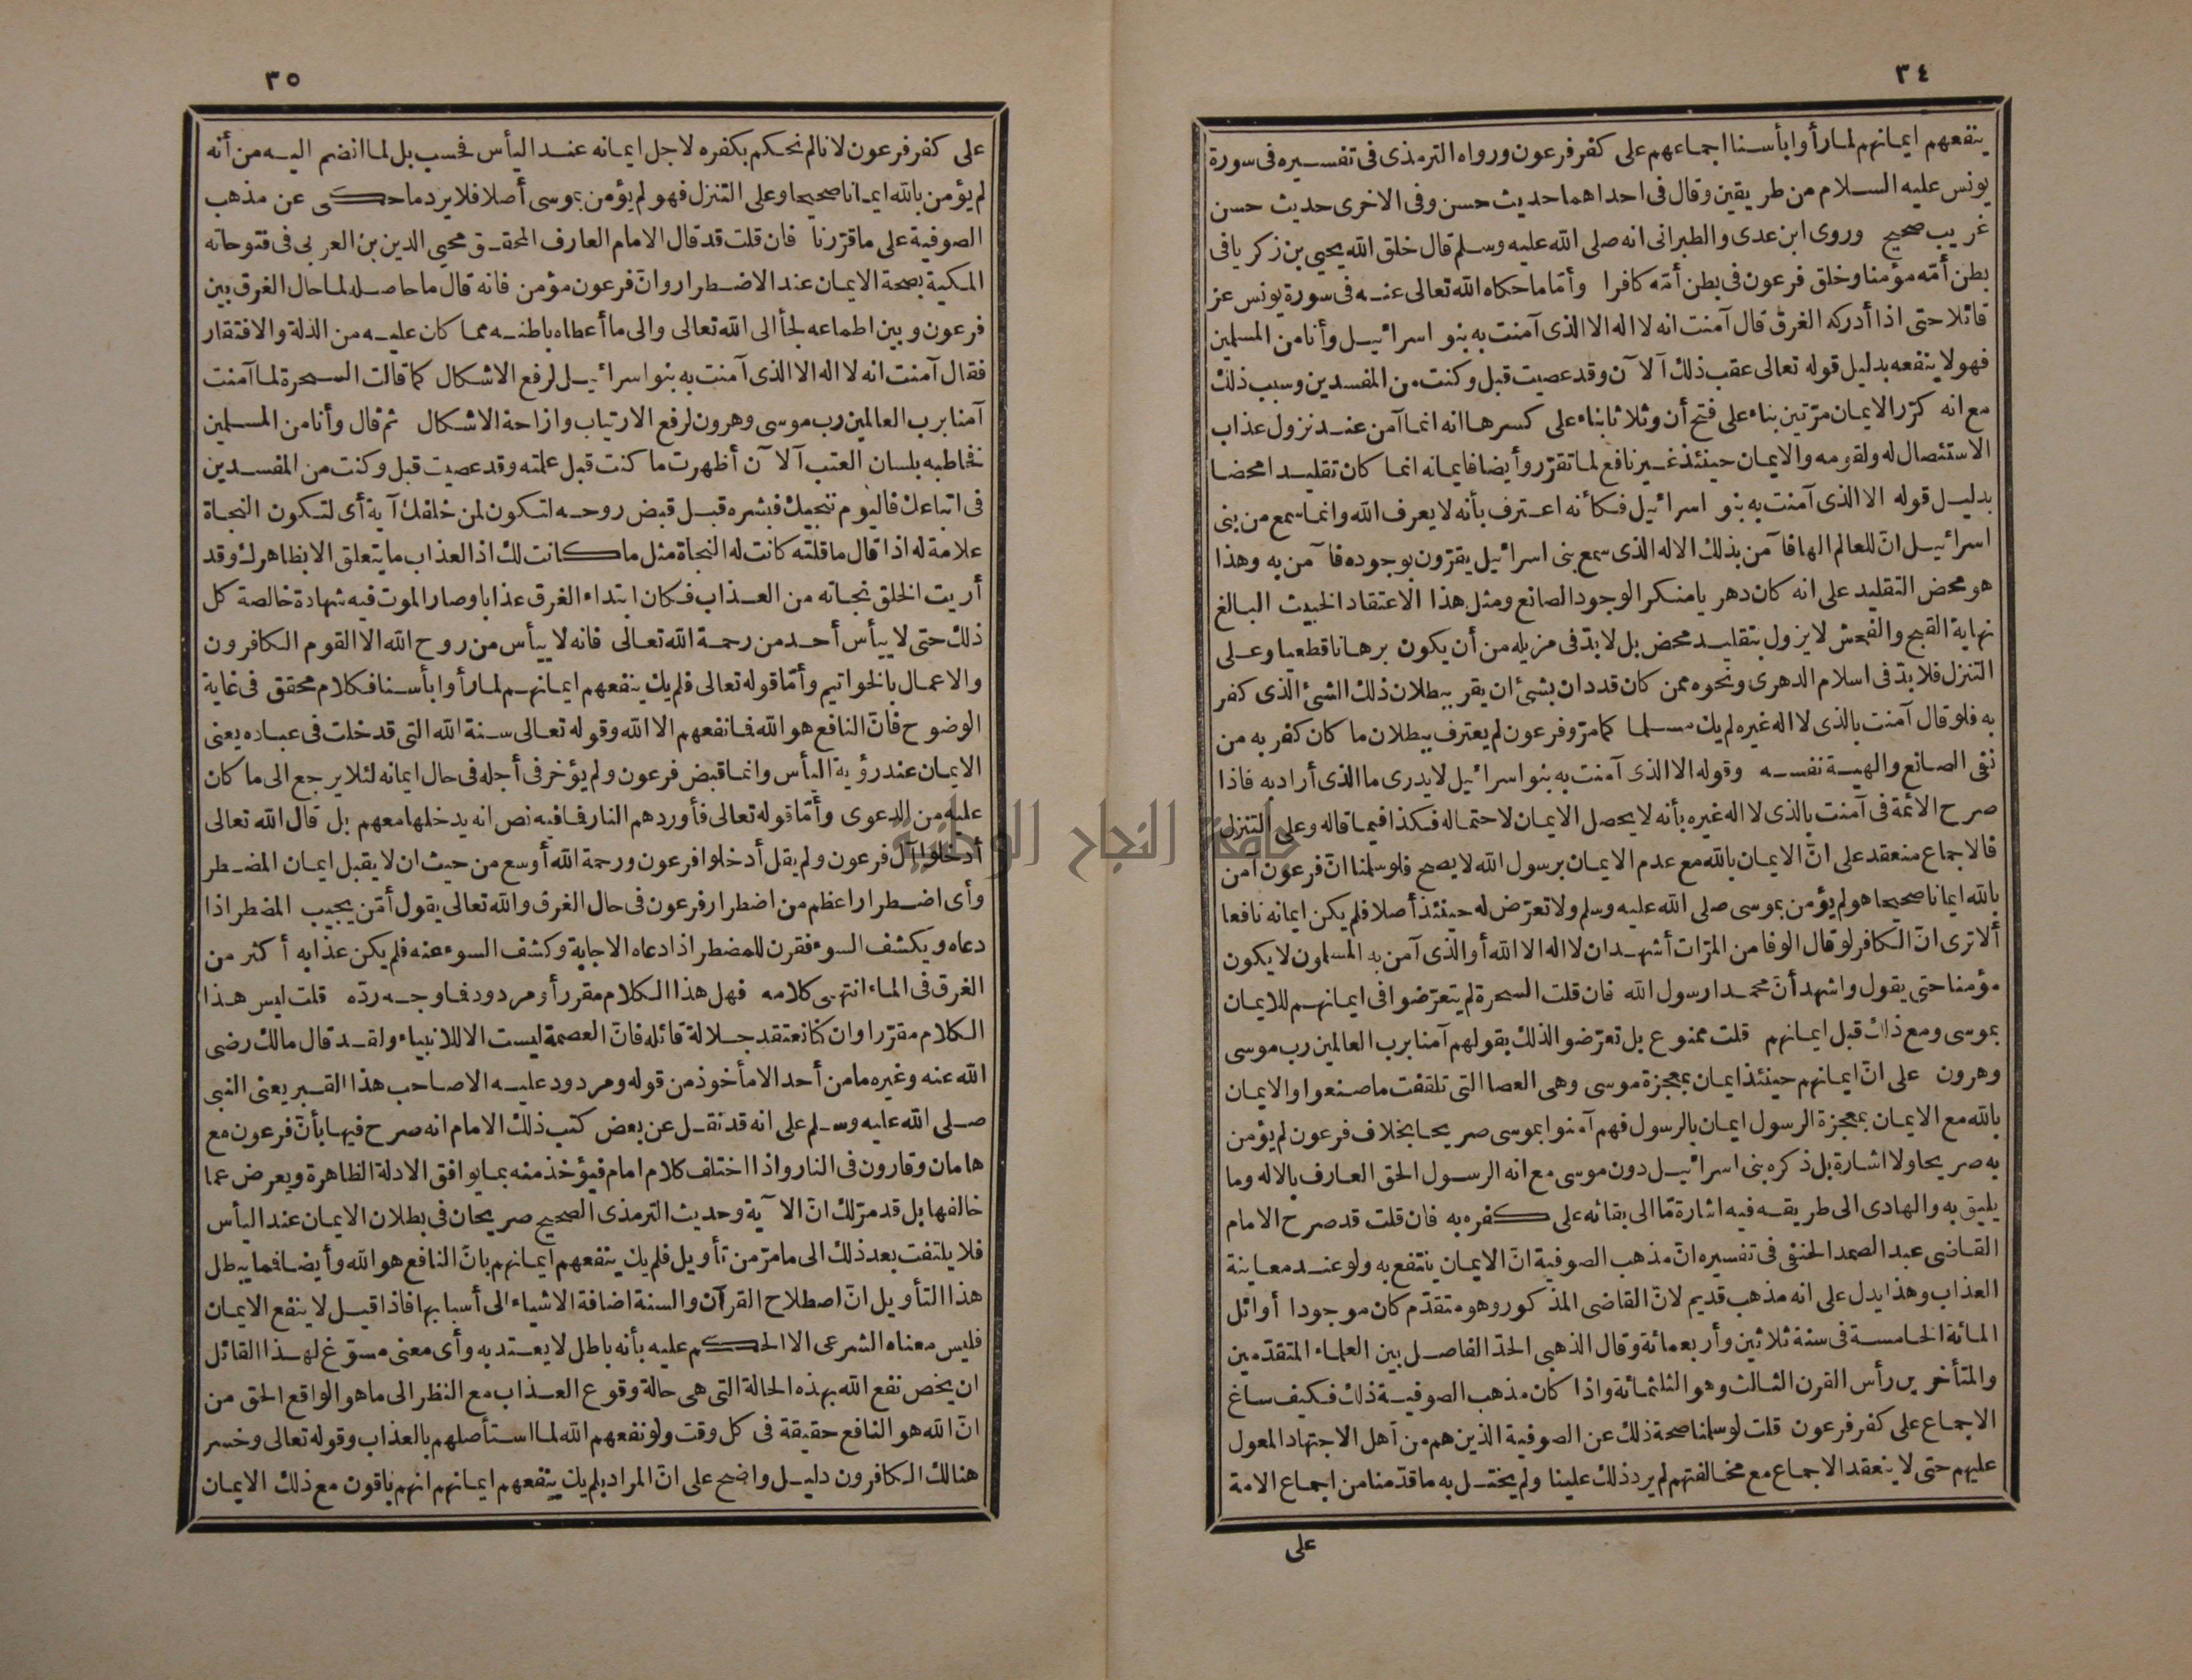 ٣٤
ينفعهم ايمانهم لما رأوا بأسنا اجماعهم على كفر فرعون ورواه الترمذى فى تفسيره فى سورة
يونس عليه السلام من طريقين وقال فى احداهما حديث حسن وفى الاخرى حديث حسن
غريب صحيح وروى ابن عدى والطبرانى انه صلى الله عليه وسلم قال خلق الله يحيى بن زكريا فى
بطن أمّه مؤمنا وخلق فرعون فى بطن أمّه كافرا وأمّا ما حكاه الله تعالى عنه فى سورة يونس عز
قائلا حتى اذا أدركه الغرق قال آمنت انه لا اله الا الذى آمنت به بنو اسرائيل وأنا من المسلمين
فهو لا ينفعه بدليل قوله تعالى عقب ذلك آلآن وقد عصيت قبل وكنت من المفسدين وسبب ذلك
مع انه كرّر الايمان مرّتين بناء على فتح أن وثلاثا بناء على كسرها انه انما آمن عند نزول عذاب
الاستئصال له ولقومه والايمان حينئذ غير نافع لما تقرّر وأيضا فايمانه انما كان تقليدا محضا
بدليل قوله الا الذى آمنت به بنو اسرائيل فكأنه اعترف بأنه لا يعرف الله وانما سمع من بنى
اسرائيل انّ للعالم الها فآمن بذلك الاله الذى سمع بنى اسرائيل يقرّون بوجوده فآمن به وهذا
هو محض التقليد على انه كان دهريا منكر الوجود الصانع ومثل هذا الاعتقاد الخبيث البالغ
نهاية القبح والفحش لا يزول بتقليد محض بل لا بدّ فى مزيله من أن يكون برهانا قطعيا وعلى
التنزل فلا بدّ فى اسلام الدهرى ونحوه ممن كان قد دان بشئ ان يقر ببطلان ذلك الشئ الذى كفر
به فلو قال آمنت بالذى لا اله غيره لم يك مسلما كما مرّ وفرعون لم يعترف ببطلان ما كان كفر به من
نفى الصانع والهية نفسه وقوله الا الذى آمنت به بنو اسرائيل لا يدرى ما الذى أراد به فاذا
صرح الائمة فى آمنت بالذى لا اله غيره بأنه لا يحصل الايمان لاحتماله فكذا فيما قاله وعلى التنزل
فالاجماع منعقد على انّ الايمان بالله مع عدم الايمان برسول الله لا يصح فلو سلمنا انّ فرعون آمن
بالله ايمانا صحيحا هو لم يؤمن بموسى صلى الله عليه وسلم ولا تعرّض له حينئذ أصلا فلم يكن ايمانه نافعا
ألا ترى انّ الكافر لو قال الوفا من المرّات أشهد ان لا اله الا الله أو الذى آمن به المسلمون لا يكون
مؤمنا حتى يقول واشهد أنّ محمدا رسول الله فان قلت السحرة لم يتعرّضوا فى ايمانهم للايمان
بموسى ومع ذلك قبل ايمانهم قلت ممنوع بل تعرّضوا لذلك بقولهم آمنا برب العالمين رب موسى
وهرون على انّ ايمانهم حينئذ ايمان بمعجزة موسى وهى العصا التى تلقفت ما صنعوا والايمان
بالله مع الايمان بمعجزة الرسول ايمان بالرسول فهم آمنوا بموسى صريحا بخلاف فرعون لم يؤمن
به صريحا ولا اشارة بل ذكره بنى اسرائيل دون موسى مع انه الرسول الحق العارف بالاله وما
يليق به والهادى الى طريقه فيه اشارة مّا الى بقائه على كفره به فان قلت قد صرح الامام
القاضى عبد الصمد الحنفى فى تفسيره انّ مذهب الصوفية انّ الايمان ينتفع به ولو عند معاينة
العذاب وهذا يدل على انه مذهب قديم لانّ القاضى المذكور وهو متقدّم كان موجودا أوائل
المائة الخامسة فى سنة ثلاثين وأربعمائة وقال الذهبى الحدّ الفاصل بين العلماء المتقدّمين
والمتأخرين رأس القرن الثالث وهو الثلثمائة واذا كان مذهب الصوفية ذلك فكيف ساغ
الاجماع على كفر فرعون قلت لو سلمنا صحة ذلك عن الصوفية الذين هم من أهل الاجتهاد المعول
عليهم حتى لا ينعقد الاجماع مع مخالفتهم لم يرد ذلك علينا ولم يختل به ما قدّمنا من اجماع الامة
على
٣٥
على كفر فرعون لانا لم نحكم بكفره لاجل ايمانه عند اليأس فحسب بل لما انضم اليه من أنه
لم يؤمن بالله ايمانا صحيحا وعلى التنزل فهو لم يؤمن بموسى أصلا فلا يرد ما حكى عن مذهب
الصوفية على ما قرّرنا فان قلت قد قال الامام العارف المحقق محيى الدين بن العربى فى فتوحاته
المكية بصحة الايمان عند الاضطرار وانّ فرعون مؤمن فانه قال ما حاصله لما حال الغرق بين
فرعون وبين اطماعه لجأ الى الله تعالى والى ما أعطاه باطنه مما كان عليه من الذلة والافتقار
فقال آمنت انه لا اله الا الذى آمنت به بنو اسرائيل لرفع الاشكال كما قالت السحرة لما آمنت
آمنا برب العالمين رب موسى وهرون لرفع الارتياب وازاحة الاشكال ثم قال وأنا من المسلمين
فخاطبه بلسان العتب آلآن أظهرت ما كنت قبل علمته وقد عصيت قبل وكنت من المفسدين
فى اتباعك فاليوم ننجيك فبشره قبل قبض روحه لتكون لمن خلفك آية أى لتكون النجاة
علامة له اذا قال ما قلته كانت له النجاة مثل ما كانت لك اذ العذاب ما يتعلق الا بظاهرك وقد
أريت الخلق نجاته من العذاب فكان ابتداء الغرق عذابا وصار الموت فيه شهادة خالصة كل
ذلك حتى لا ييأس أحد من رحمة الله تعالى فانه لا ييأس من روح الله الا القوم الكافرون
والاعمال بالخواتيم وأمّا قوله تعالى فلم يك ينفعهم ايمانهم لما رأوا بأسنا فكلام محقق فى غاية
الوضوح فانّ النافع هو الله فما نفعهم الا الله وقوله تعالى سنة الله التى قد خلت فى عباده يعنى
الايمان عند رؤية البأس وانما قبض فرعون ولم يؤخر فى أجله فى حال ايمانه لئلا يرجع الى ما كان
عليه من الدعوى وأمّا قوله تعالى فأوردهم النار فما فيه نص انه يدخلها معهم بل قال الله تعالى
أدخلوا آل فرعون ولم يقل أدخلوا فرعون ورحمة الله أوسع من حيث ان لا يقبل ايمان المضطر
وأى اضطرار اعظم من اضطرار فرعون فى حال الغرق والله تعالى يقول أمّن يجيب المضطر اذا
دعاه ويكشف السوء فقرن للمضطر اذا دعاه الاجابة وكشف السوء عنه فلم يكن عذابه أكثر من
الغرق فى الماء انتهى كلامه فهل هذا الكلام مقرر أو مردود فما وجه ردّه قلت ليس هذا
الكلام مقرّرا وان كنا نعتقد جلالة قائله فانّ العصمة ليست الا للانبياء ولقد قال مالك رضى
الله عنه وغيره ما من أحد الا مأخوذ من قوله ومردود عليه الا صاحب هذا القبر يعنى النبى
صلى الله عليه وسلم على انه قد نقل عن بعض كتب ذلك الامام انه صرح فيها بأنّ فرعون مع
هامان وقارون فى النار واذا اختلف كلام امام فيؤخذ منه بما يوافق الادلة الظاهرة ويعرض عما
خالفها بل قد مرّ لك انّ الآية وحديث الترمذى الصحيح صريحان فى بطلان الايمان عند اليأس
فلا يلتفت بعد ذلك الى ما مرّ من تأويل فلم يك ينفعهم ايمانهم بانّ النافع هو الله وأيضا فمما يبطل
هذا التأويل انّ اصطلاح القرآن والسنة اضافة الاشياء الى أسبابها فاذا قيل لا ينفع الايمان
فليس معناه الشرعى الا الحكم عليه بأنه باطل لا يعتد به وأى معنى مسوّغ لهذا القائل
ان يخص نفع الله بهذه الحالة التى هى حالة وقوع العذاب مع النظر الى ما هو الواقع الحق من
انّ الله هو النافع حقيقة فى كل وقت ولو نفعهم الله لما استأصلهم بالعذاب وقوله تعالى وخسر
هنالك الكافرون دليل واضح على انّ المراد بلم يك ينفعهم ايمانهم انهم باقون مع ذلك الايمان
جامعة النجاح الوطنية